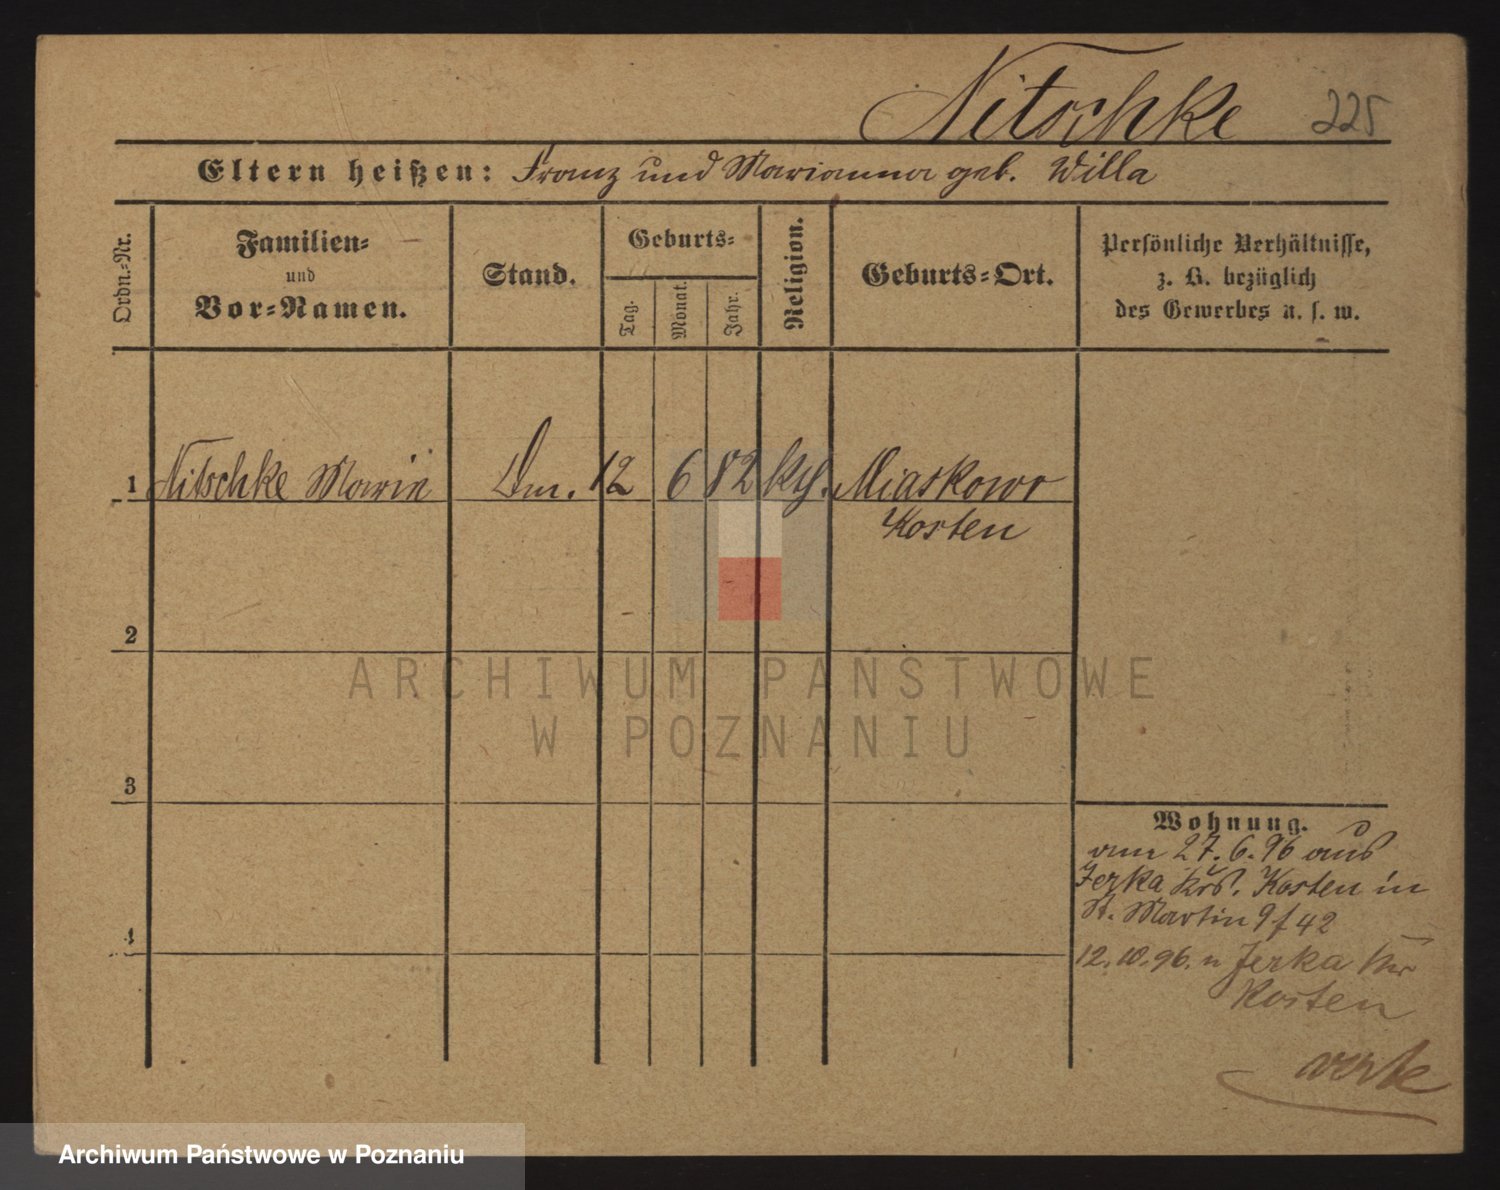 Nitschke 225
Eltern heißen: Franz und Marianna geb. Willa
Ordn.-Nr.
Familien-
und
Vor-Namen.
Stand.
Geburts-
Tag.
Monat.
Jahr.
Religion.
Geburts-Ort.
Persönliche Verhältnisse,
z. B. bezüglich
des Gewerbes u. s. w.
1 Nitschke Marie 12 6 82 kth. Miaskowo
Kosten
2
3
4
Wohnung.
am 27. 6. 96 aus
Jerka Krs. Kosten in
St. Martin 9 f 42
12. 10. 96. n Jerka
Kosten
ARCHIWUM PAŃSTWOWE
W POZNANIU
Archiwum Państwowe w Poznaniu